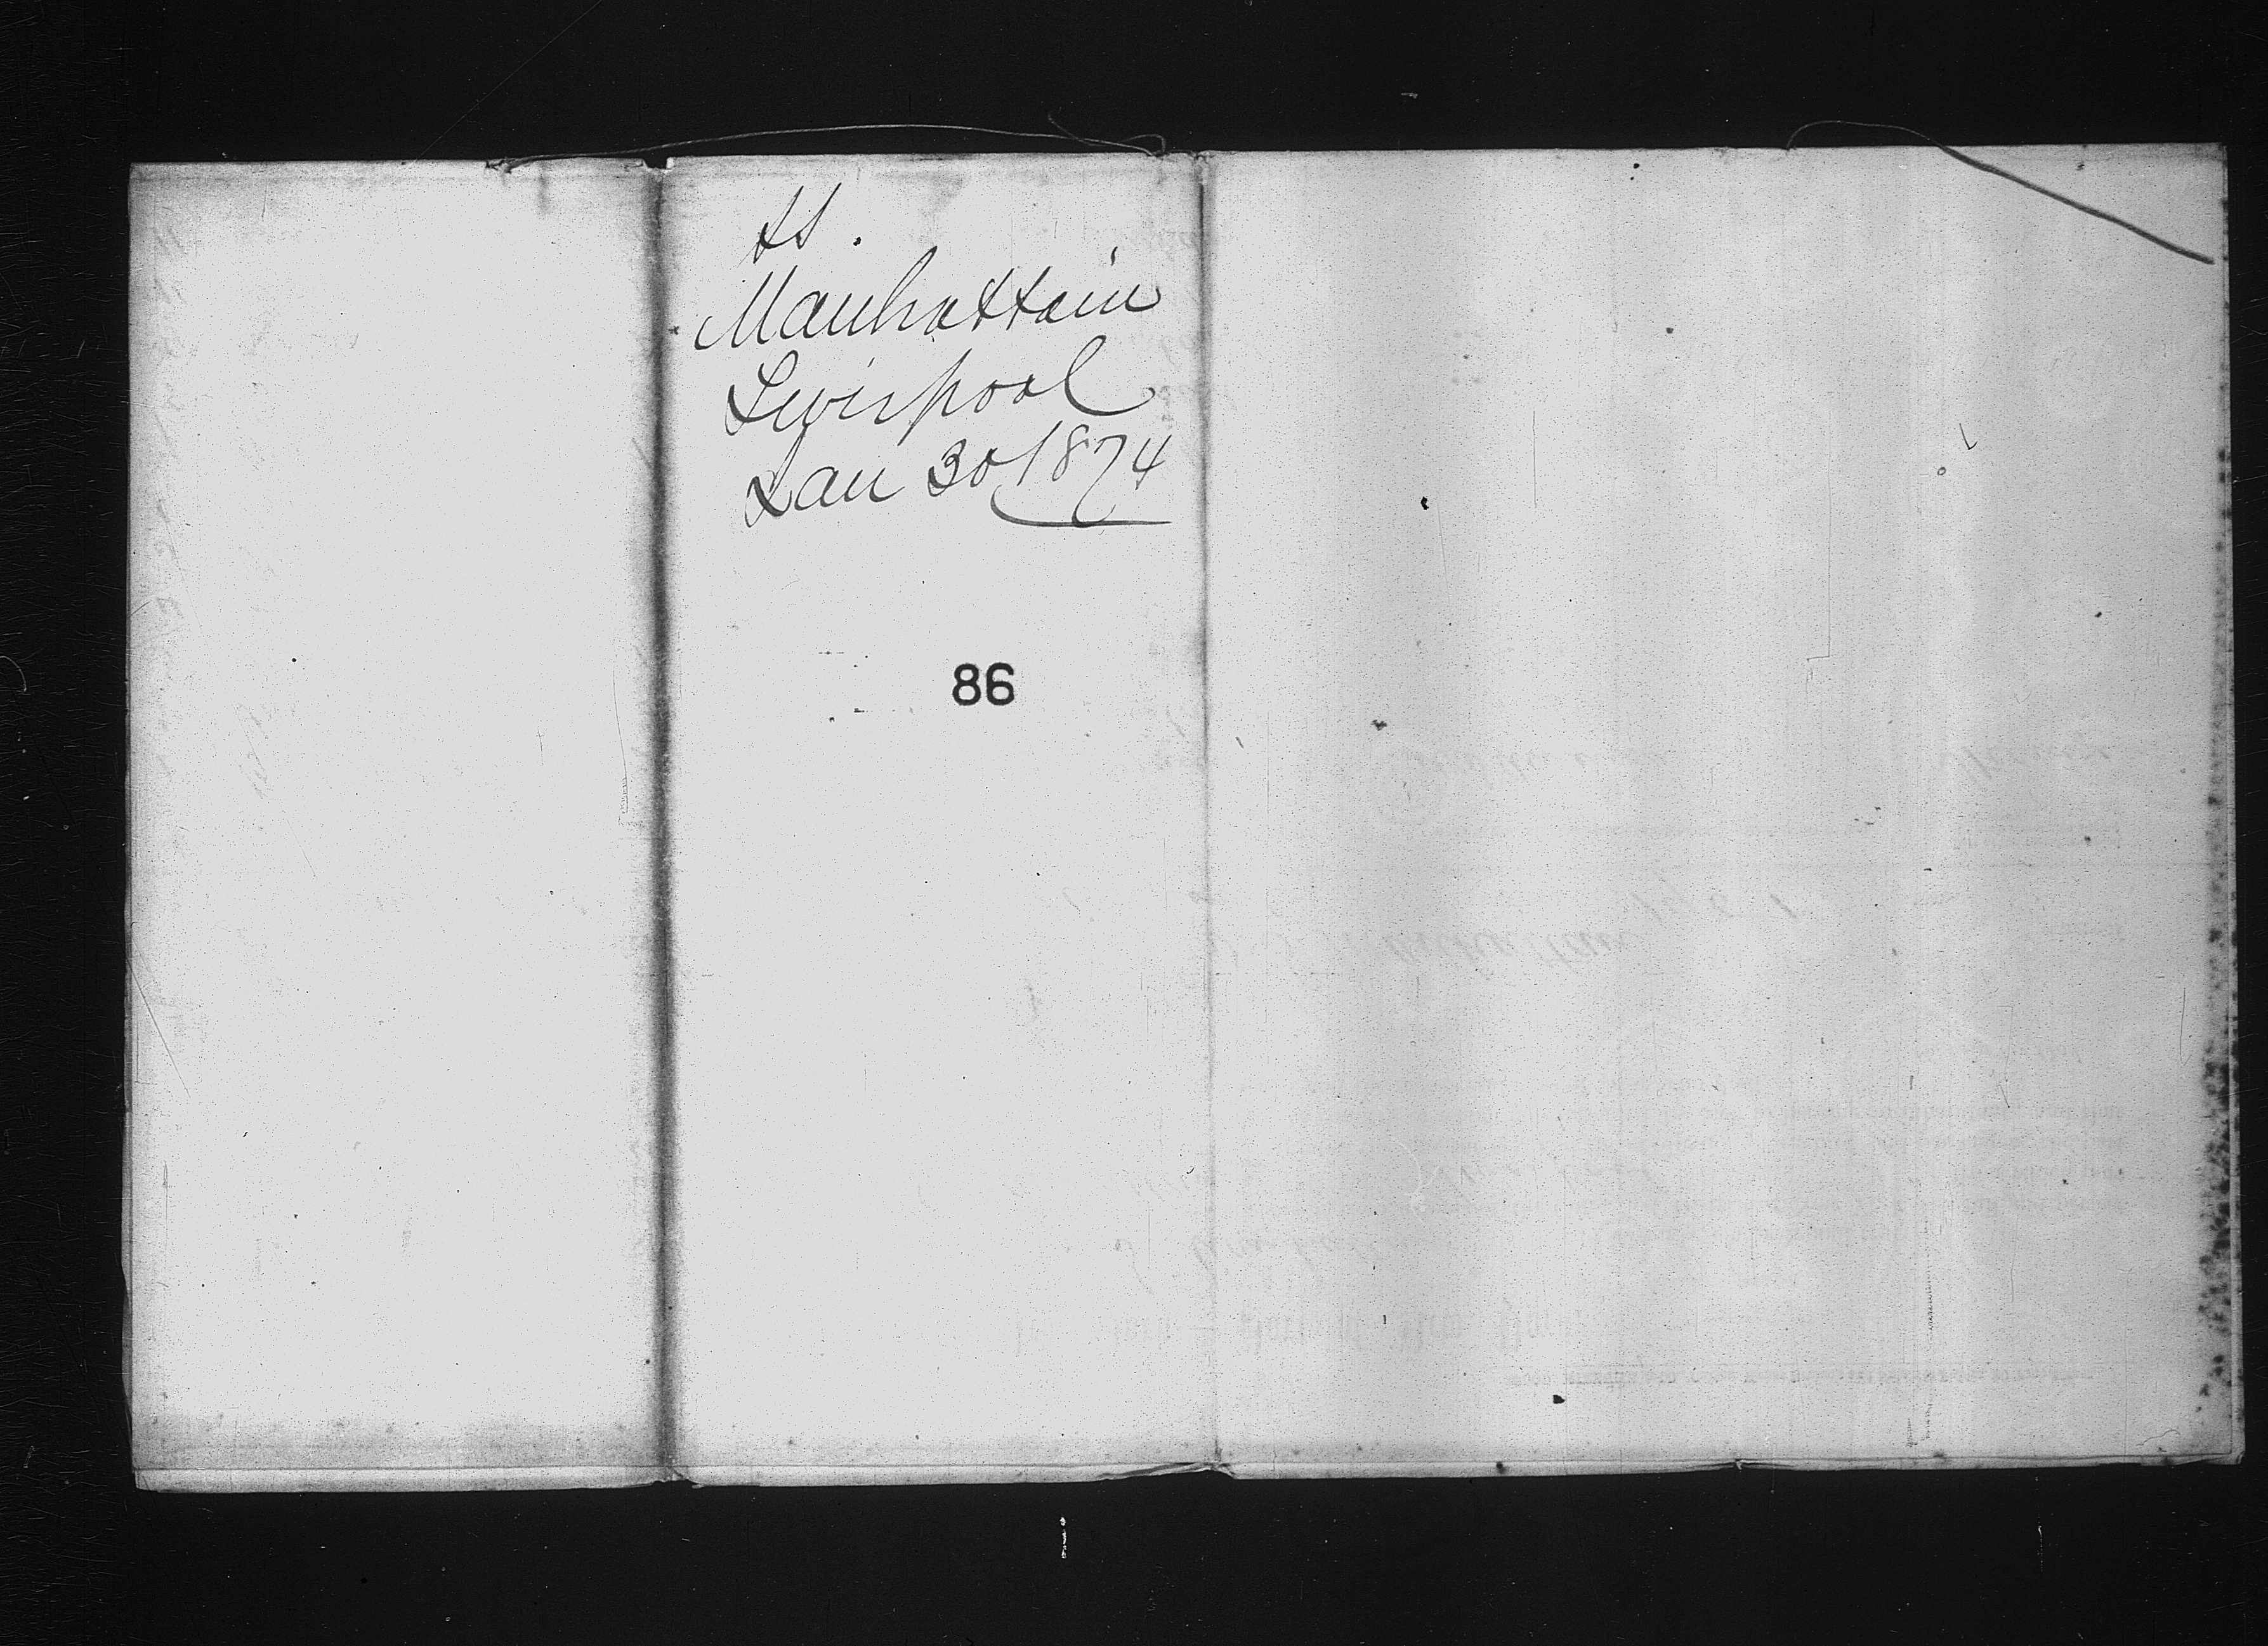 SS.
Manhattain
Livirpool
Jan 30 1874
86